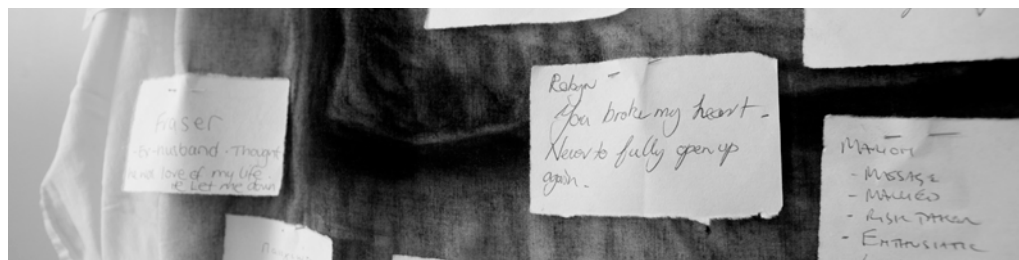 Fraser
- Ex-husband - Thought
love of my life.
Let me down
Robyn -
You broke my heart -
Never to fully open up
again.
MARION
- MASSAGE
- MARRIED
- RISK TAKER
- ENTHUSIASTIC